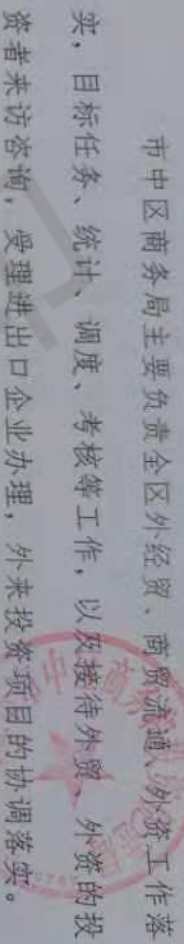 市中区商务局主要负责全区外经贸、商贸流通、外资工作落
实,目标任务、统计、调度、考核等工作,以及接待外贸、外资的投
资者来访咨询,受理进出口企业办理,外来投资项目的协调落实。